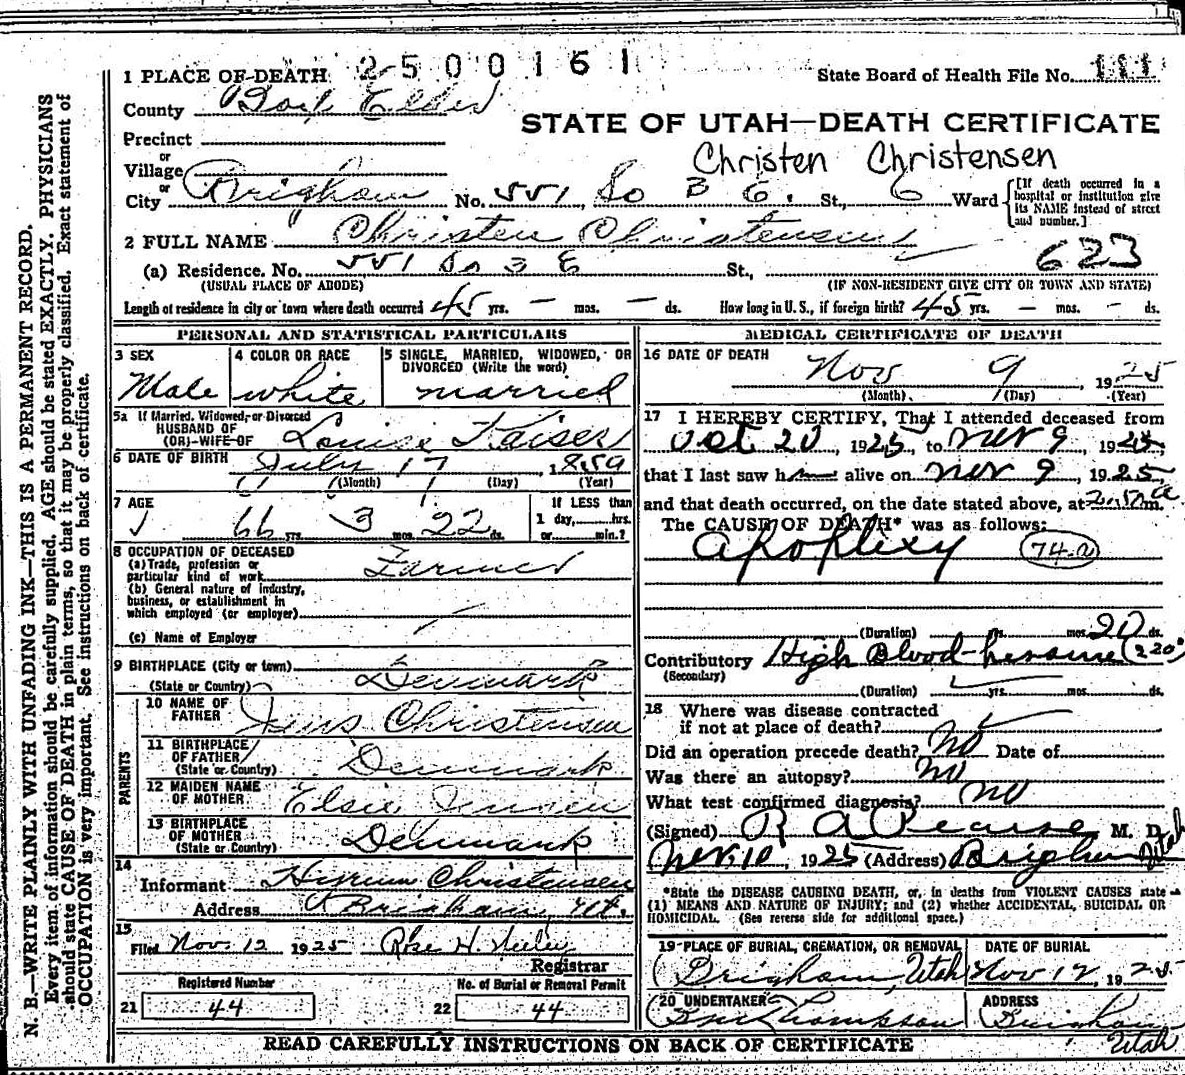 2500161
State Board of Health File No. 111
1 PLACE OF DEATH
County Box Elder
STATE OF UTAH—DEATH CERTIFICATE
Precinct
or
Village
Christen Christensen
or
City Brigham No. 551 So 3 E. St., 6 Ward
[If death occurred in a hospital or institution give its NAME instead of street and number.]
2 FULL NAME Christen Christensen
623
(a) Residence. No. 551 So 3 E St.,
(USUAL PLACE OF ABODE) (IF NON-RESIDENT GIVE CITY OR TOWN AND STATE)
Length of residence in city or town where death occurred 45 yrs. — mos. — ds. How long in U. S., if foreign birth? 45 yrs. — mos. — ds.
PERSONAL AND STATISTICAL PARTICULARS
3 SEX
Male
4 COLOR OR RACE
white
5 SINGLE, MARRIED, WIDOWED, OR
DIVORCED (Write the word)
married
5a If Married, Widowed, or Divorced
HUSBAND OF
(OR) WIFE OF Louise Kaiser
6 DATE OF BIRTH July 17, 1859
(Month) (Day) (Year)
7 AGE
66 yrs. 3 mos. 22 ds.
If LESS than
1 day, hrs.
or min.?
8 OCCUPATION OF DECEASED
(a) Trade, profession or
particular kind of work Farmer
(b) General nature of industry,
business, or establishment in
which employed (or employer)
(c) Name of Employer
9 BIRTHPLACE (City or town)
(State or Country) Denmark
PARENTS
10 NAME OF
FATHER Jens Christensen
11 BIRTHPLACE
OF FATHER
(State or Country) Denmark
12 MAIDEN NAME
OF MOTHER Elsie Jensen
13 BIRTHPLACE
OF MOTHER
(State or Country) Denmark
14
Informant Hyrum Christensen
Address Brigham, Ut.
15
Filed Nov. 12 1925 Rose H.
Registrar
Registered Number
21 44
No. of Burial or Removal Permit
22 44
MEDICAL CERTIFICATE OF DEATH
16 DATE OF DEATH
Nov 9, 1925
(Month) (Day) (Year)
17 I HEREBY CERTIFY, That I attended deceased from
Oct 20 1925 to Nov 9, 1925,
that I last saw h alive on Nov 9, 1925
and that death occurred, on the date stated above, at m.
The CAUSE OF DEATH* was as follows:
Apoplexy 74-a
(Duration) yrs. mos. 20 ds.
Contributory High Blood-pressure (220)
(Secondary)
(Duration) yrs. mos. ds.
18 Where was disease contracted
if not at place of death?
Did an operation precede death? No Date of
Was there an autopsy? No
What test confirmed diagnosis? no
(Signed) R A Pearse M. D.
Nov. 10, 1925 (Address) Brigham Utah
*State the DISEASE CAUSING DEATH, or, in deaths from VIOLENT CAUSES state
(1) MEANS AND NATURE OF INJURY; and (2) whether ACCIDENTAL, SUICIDAL OR
HOMICIDAL. (See reverse side for additional space.)
19 PLACE OF BURIAL, CREMATION, OR REMOVAL
Brigham, Utah
DATE OF BURIAL
Nov 12, 1925
20 UNDERTAKER
Thompson
ADDRESS
Brigham
Utah
READ CAREFULLY INSTRUCTIONS ON BACK OF CERTIFICATE
N. B.—WRITE PLAINLY WITH UNFADING INK—THIS IS A PERMANENT RECORD.
Every item of information should be carefully supplied. AGE should be stated EXACTLY. PHYSICIANS
should state CAUSE OF DEATH in plain terms, so that it may be properly classified. Exact statement of
OCCUPATION is very important. See instructions on back of certificate.